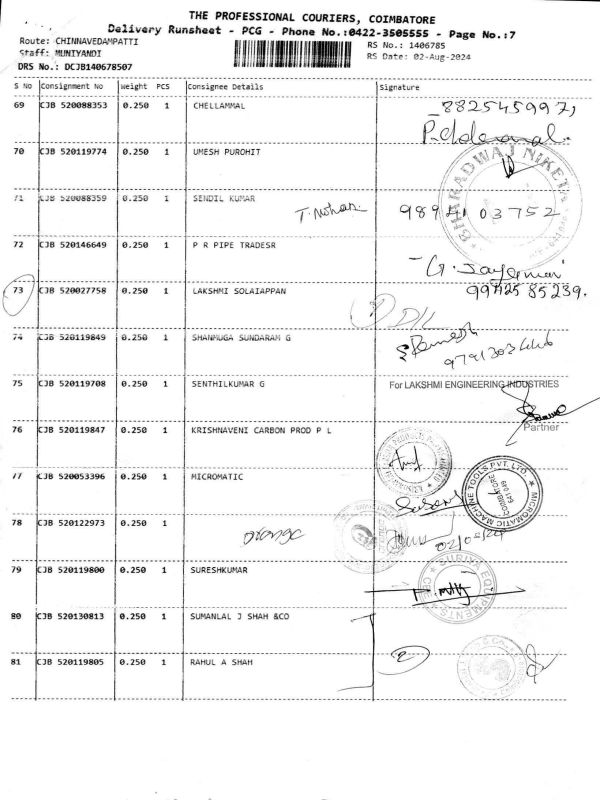 THE PROFESSIONAL COURIERS, COIMBATORE
Delivery Runsheet - PCG - Phone No.:0422-3505555 - Page No.:7
Route: CHINNAVEDAMPATTI
RS No.: 1406785
Staff: MUNIYANDI
RS Date: 02-Aug-2024
DRS No.: DCJB140678507
S No Consignment No Weight PCS Consignee Details Signature
69 CJB 520088353 0.250 1 CHELLAMMAL
70 CJB 520119774 0.250 1 UMESH PUROHIT
BHARADWAJ NIKET
71 CJB 520088359 0.250 1 SENDIL KUMAR
T. Mohan 98941 03752
72 CJB 520146649 0.250 1 P R PIPE TRADESR
73 CJB 520027758 0.250 1 LAKSHMI SOLAIAPPAN
74 CJB 520119849 0.250 1 SHANMUGA SUNDARAM G
75 CJB 520119708 0.250 1 SENTHILKUMAR G
For LAKSHMI ENGINEERING INDUSTRIES
Partner
76 CJB 520119847 0.250 1 KRISHNAVENI CARBON PROD P L
77 CJB 520053396 0.250 1 MICROMATIC
MICROMATIC MACHINE TOOLS PVT. LTD.
COIMBATORE
641 049
78 CJB 520122973 0.250 1
02/08/24
79 CJB 520119800 0.250 1 SURESHKUMAR
SURIYA EQUIPMENTS CBE
80 CJB 520130813 0.250 1 SUMANLAL J SHAH &CO
81 CJB 520119805 0.250 1 RAHUL A SHAH
2